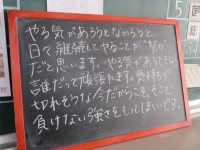 やる気があろうとなかろうと、
日々継続してやることが"努力"
だと思います。やる気があろうとなく
誰だって頑張れます。気持ちが
切れそうな今だからこそ、そこで
負けない強さをもってほしいです。